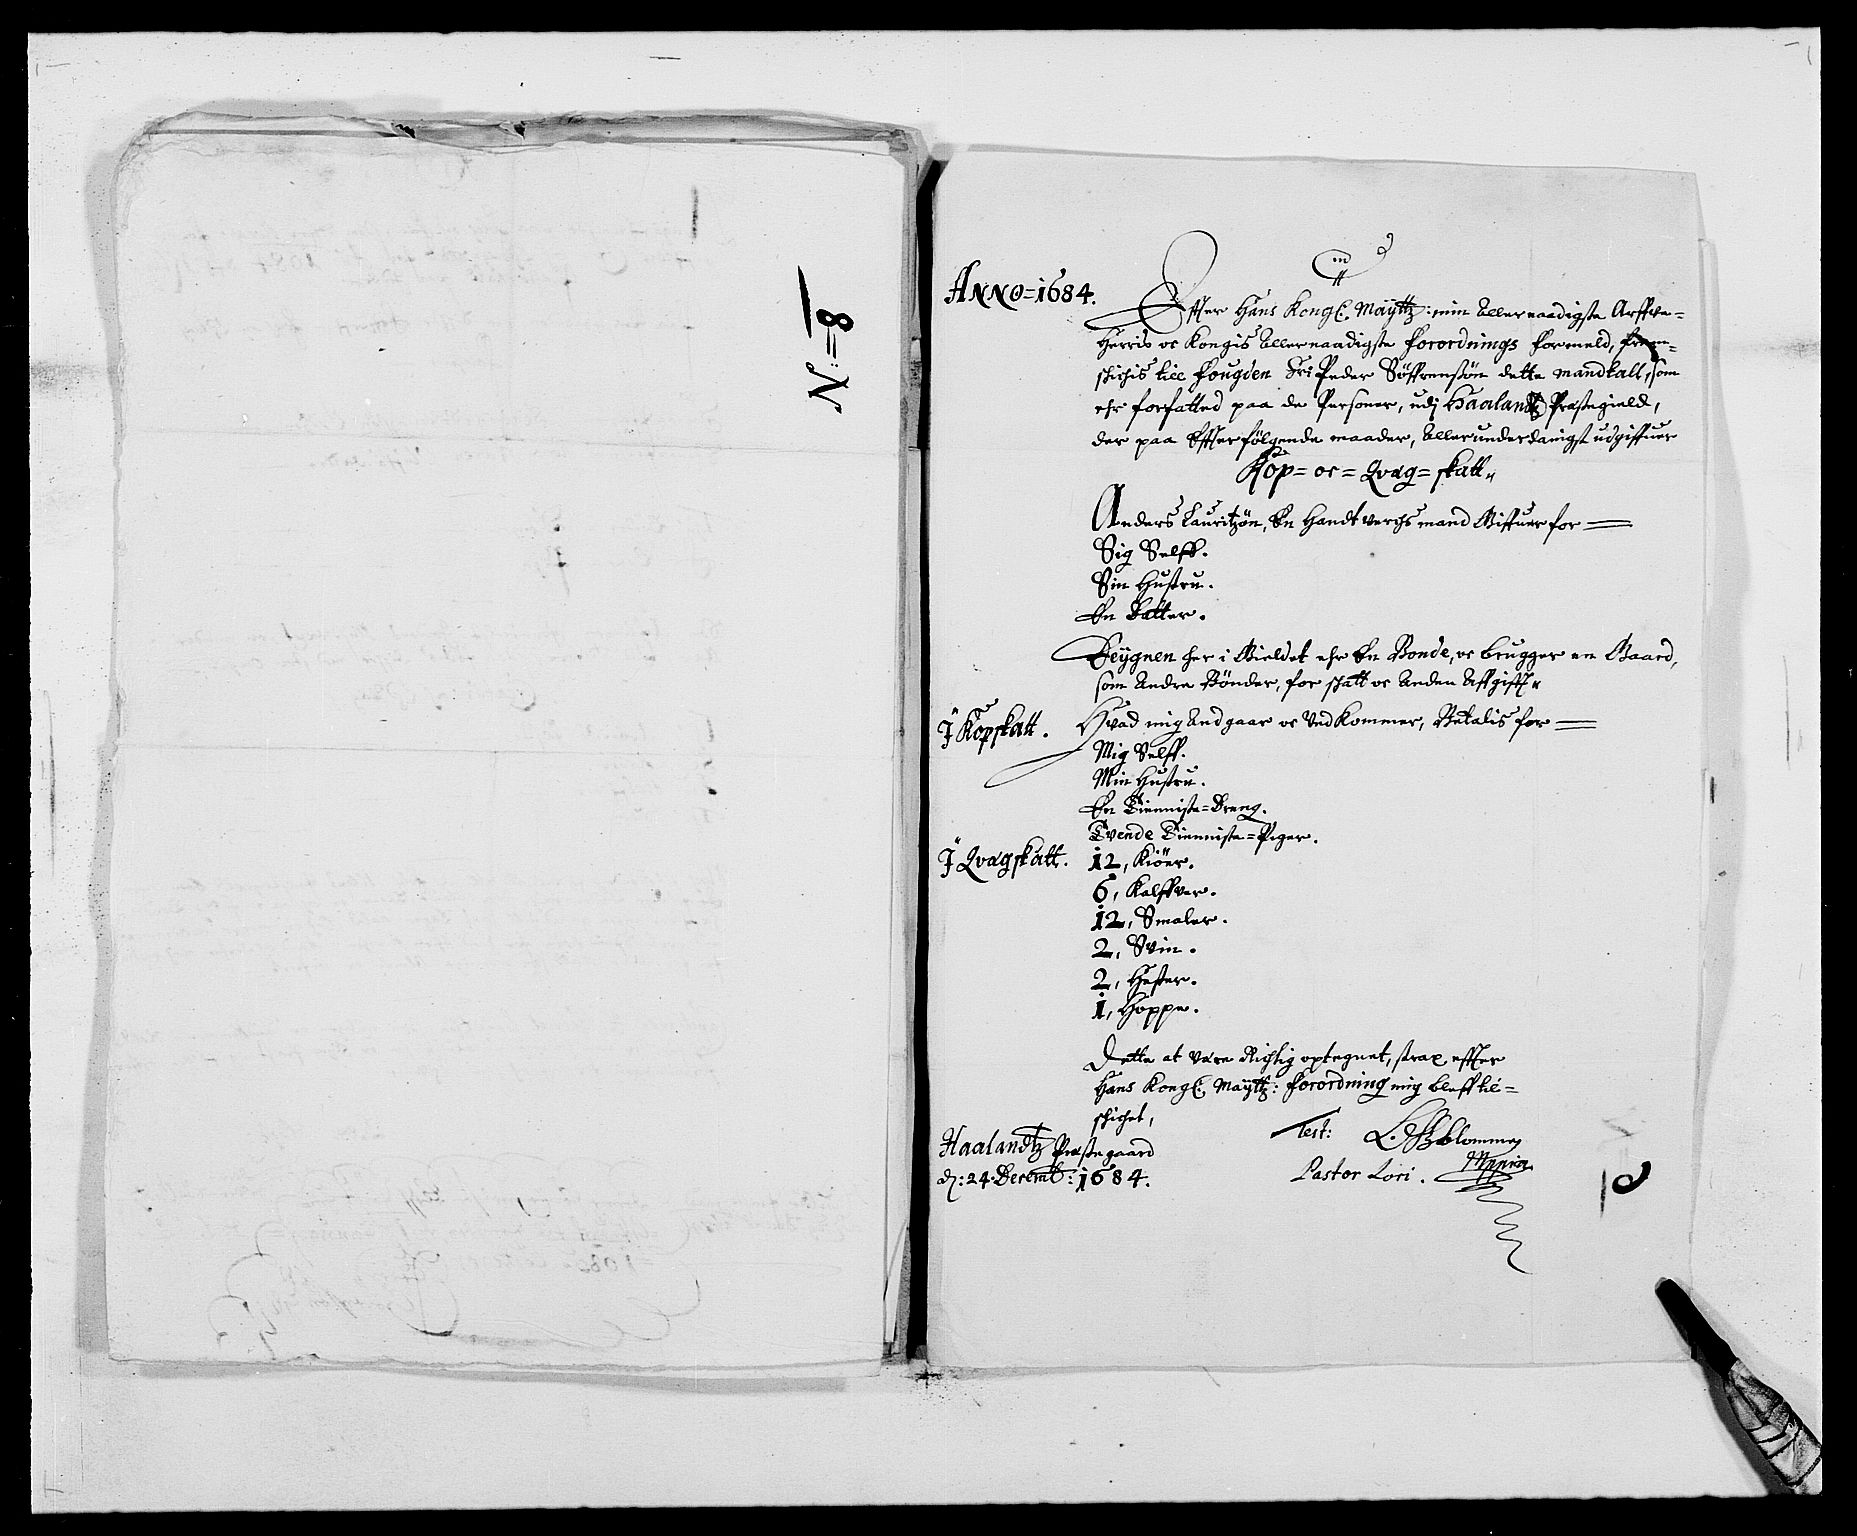 N:=8
ANNO=1684.
Effter Hans Kongl: Mayttz: min Allernaadigste Arffve=
Herris oc Kongis Allernaadigste forordnings formeld, frem=
skichis till fougden Sr: Peder Søffrensøn dette mandtall, som
ehr forfatted paa de Personer, udj Haalandtz Præstegield,
der paa Effterfølgende maader, Allerunderdanigst udgiffuer
Kop= oc= Qvæg= skatt.
Anders Lauritzøn, En Handtverchs mand Giffuer for
Sig Selff.
Sin Hustru.
En Datter.
Deygnen her i Gieldet ehr En Bonde, oc brugger en Gaard,
som Andre Bønder, for skatt oc Anden Affgifft.
J Kopskatt.
Hvad mig Andgaar oc Vedkommer, Betalis for
Mig Selff.
Min Hustru.
En Tienniste=Dreng.
Tvende Tienniste=Piger.
J Qvægskatt.
12, Kiöer.
6, Kalffver.
12, Smaler.
2, Svin.
2, Hester.
1, Hoppe.
Dette at være Richtig optegnet, strax effter
Hans Kongl: Mayttz: forordning mig bleff til=
skichet,
Haalandtz Præstegaard
d: 24 Decemb: 1684.
Test:
Blomme
Mppria
Pastor Loci.